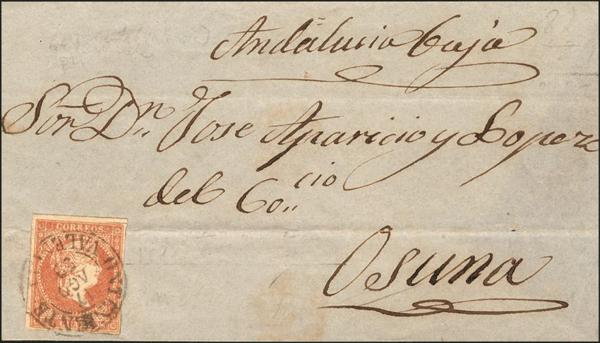 Andalucia Baja
Sor. Dn. Jose Aparicio y Lopera
del Co.cio
Osuna
CORREOS